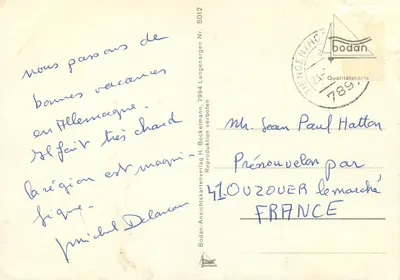 nous passons de
bonnes vacances
en Allemagne.
Il fait très chaud
la région est magni-
fique.
Michel Delaveau
Bodan-Ansichtskartenverlag H. Bockelmann, 7994 Langenargen Nr. 5012
Reproduktion verboten
bodan
Qualitätskarte
789
Mr. Jean Paul Hatton
Prénouvelon par
41 OUZOUER le marché
FRANCE